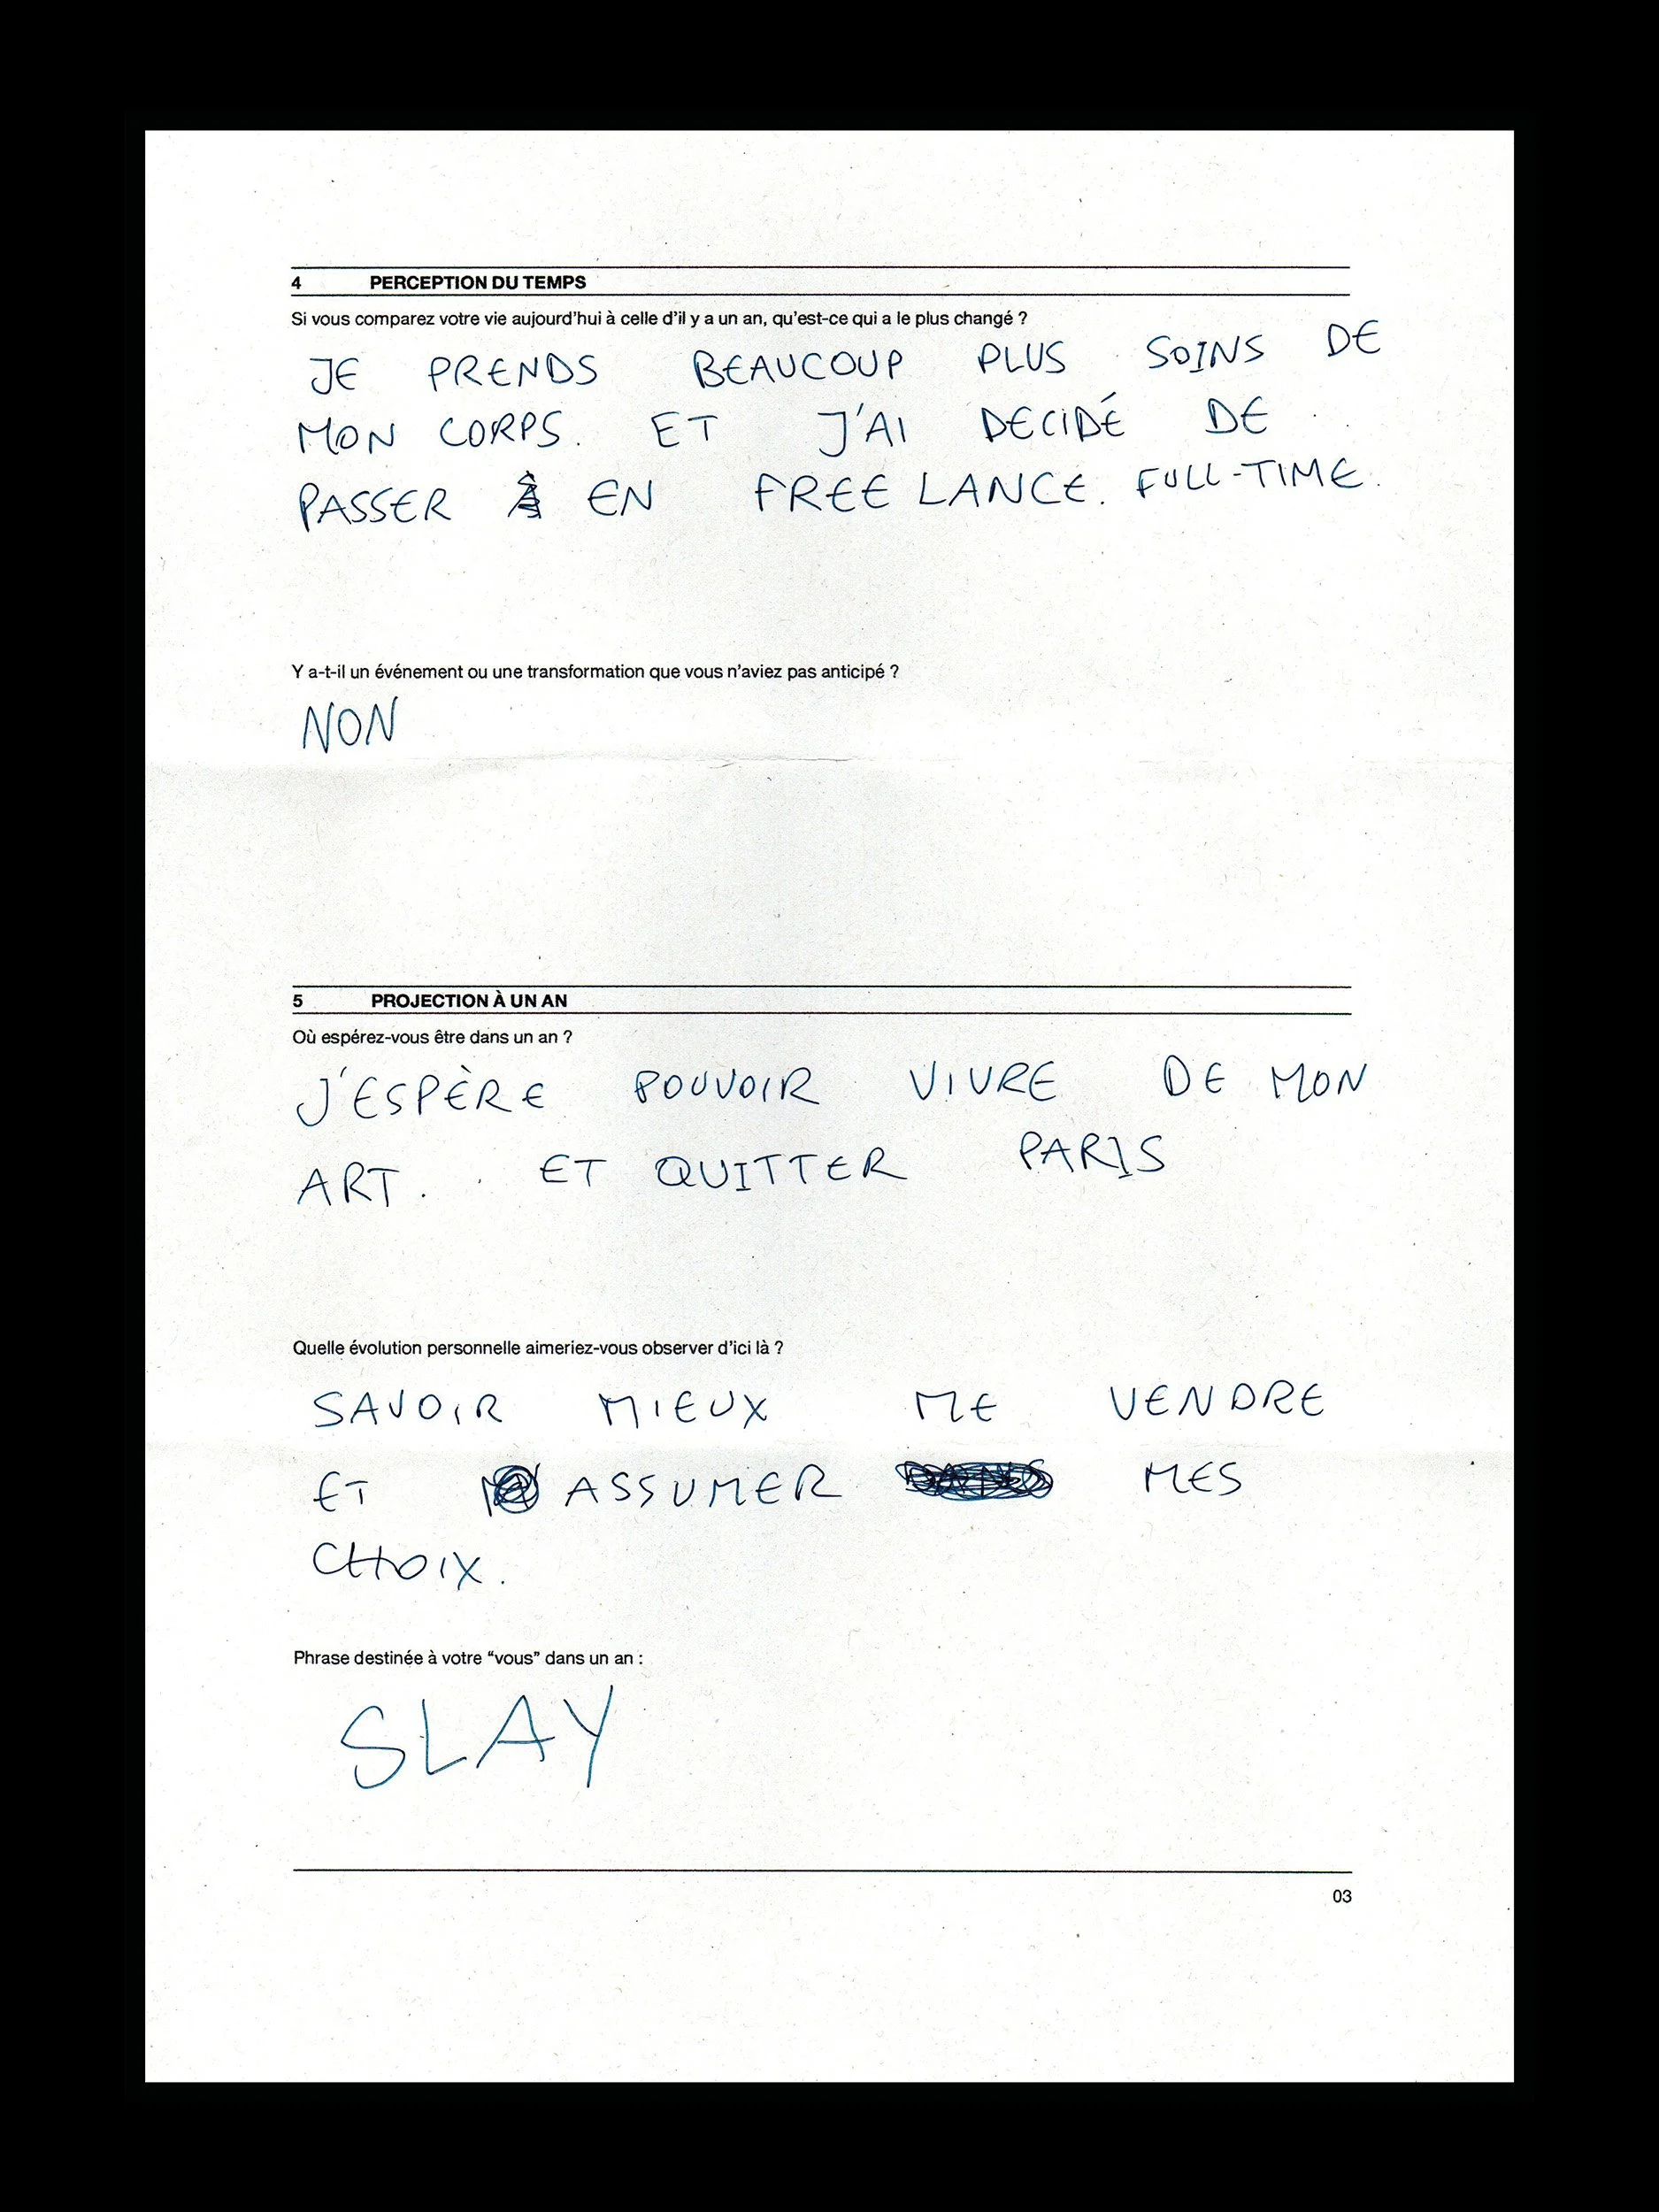 4 PERCEPTION DU TEMPS
Si vous comparez votre vie aujourd'hui à celle d'il y a un an, qu'est-ce qui a le plus changé ?
JE PRENDS BEAUCOUP PLUS SOINS DE
MON CORPS. ET J'AI DECIDÉ DE
PASSER EN FREE LANCE. FULL-TIME.
Y a-t-il un événement ou une transformation que vous n'aviez pas anticipé ?
NON
5 PROJECTION À UN AN
Où espérez-vous être dans un an ?
J'ESPÈRE POUVOIR VIVRE DE MON
ART. ET QUITTER PARIS
Quelle évolution personnelle aimeriez-vous observer d'ici là ?
SAVOIR MIEUX ME VENDRE
ET ASSUMER MES
CHOIX.
Phrase destinée à votre “vous” dans un an :
SLAY
03